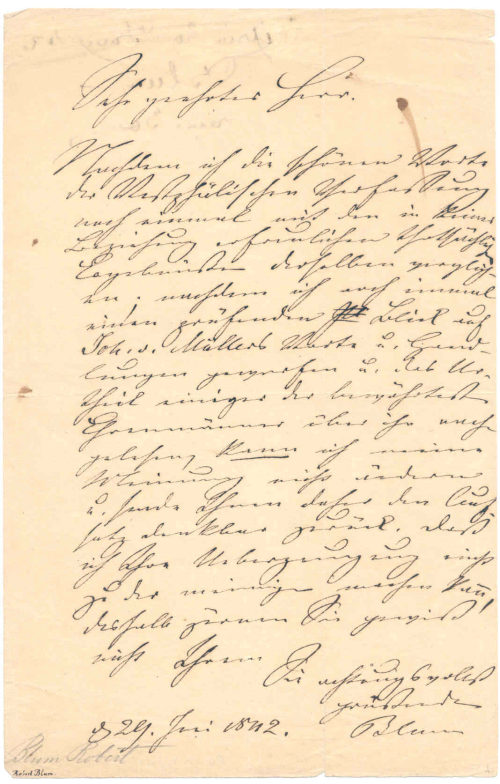 Sehr geehrter Herr.
Nachdem ich die schönen Worte
der Westphälischen Verfassung
noch einmal mit den in keiner
Beziehung erfreulichen thatsächlichen
Ergebnissen derselben verglich-
en, nachdem ich noch einmal
einen prüfenden Blick auf
Joh. v. Müllers Worte u. Hand-
lungen geworfen u. das Ur-
theil einiger der bewährtest
Ehrenmänner über ihn nach-
gelesen, kann ich meine
Meinung nicht ändern
u. sende Ihnen daher den Auf-
satz dankbar zurück. Daß
ich Ihre Ueberzeugung nicht
zu der meinigen machen kann,
deshalb zürnen Sie gewiß
nicht Ihrem
Sie achtungsvollst
grüßenden
Blum
d 24. Juni 1842.
Blum Robert
Robert Blum